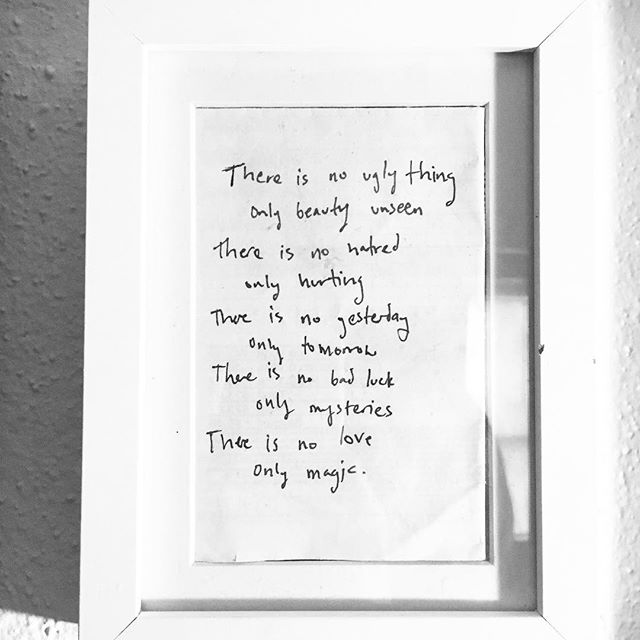 There is no ugly thing
only beauty unseen
There is no hatred
only hurting
There is no yesterday
only tomorrow
There is no bad luck
only mysteries
There is no love
only magic.